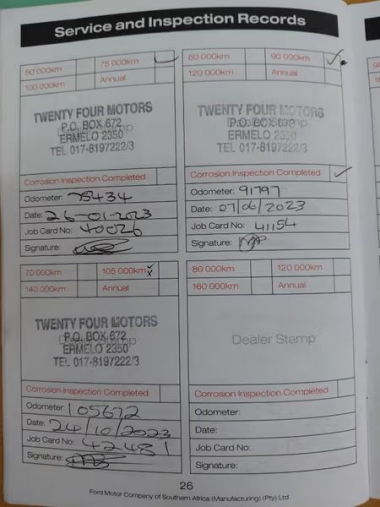 Service and Inspection Records
50 000km 75 000km
100 000km Annual
TWENTY FOUR MOTORS
P.O. BOX 672
ERMELO 2350
TEL 017-8197222/3
Corrosion Inspection Completed
Odometer: 75434
Date: 26-01-2023
Job Card No: 40026
Signature:
60 000km 90 000km
120 000km Annual
TWENTY FOUR MOTORS
P.O. BOX 672
ERMELO 2350
TEL 017-8197222/3
Corrosion Inspection Completed
Odometer: 91797
Date: 07/06/2023
Job Card No: 41154
Signature:
70 000km 105 000km
140 000km Annual
TWENTY FOUR MOTORS
P.O. BOX 672
ERMELO 2350
TEL 017-8197222/3
Corrosion Inspection Completed
Odometer: 105672
Date: 24/10/2023
Job Card No: 42481
Signature:
80 000km 120 000km
160 000km Annual
Dealer Stamp
Corrosion Inspection Completed
Odometer:
Date:
Job Card No:
Signature:
26
Ford Motor Company of Southern Africa (Manufacturing) (Pty) Ltd